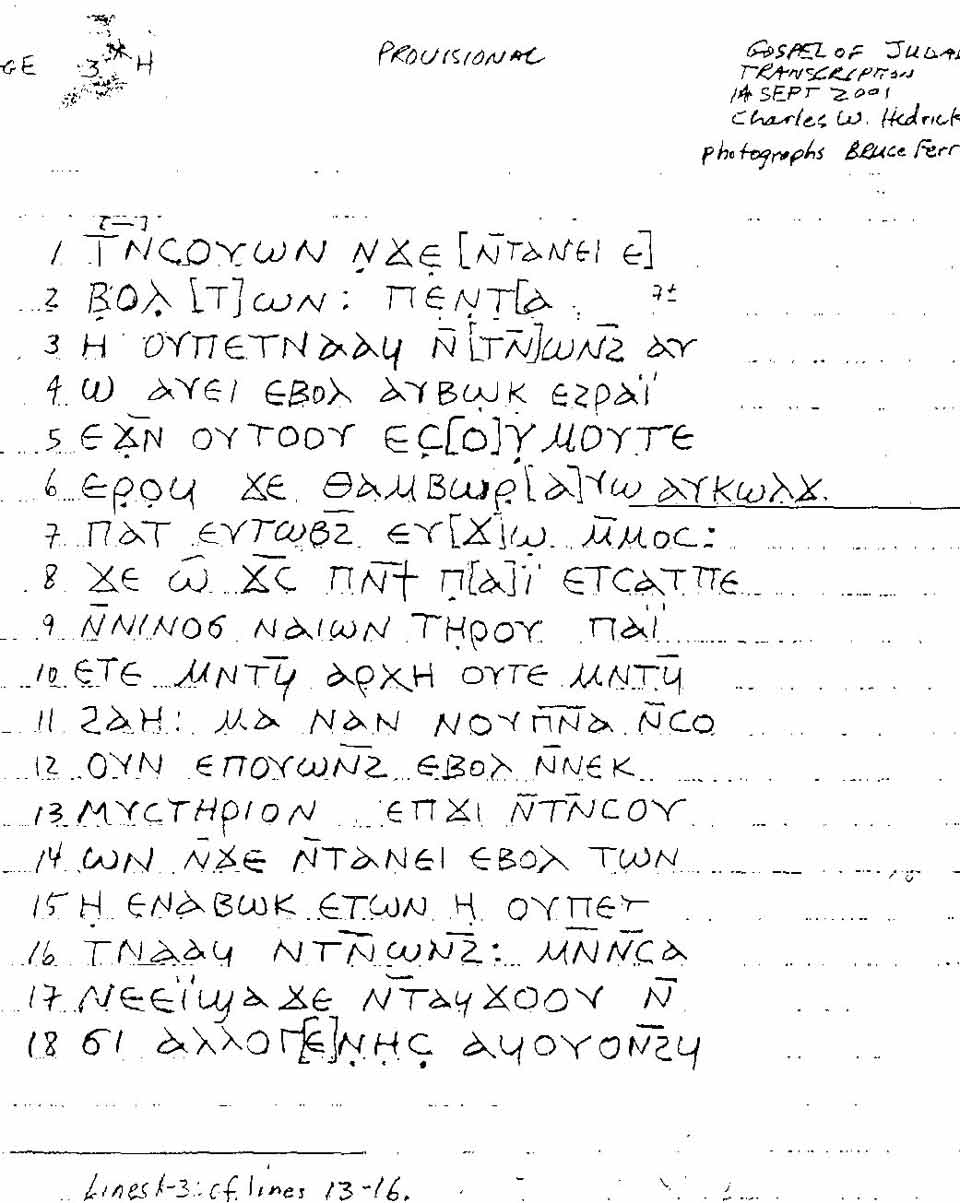 GE 3* H
PROVISIONAL
GOSPEL OF JUDAS
TRANSCRIPTION
14 SEPT 2001
Charles W. Hedrick
Photographs BRUCE Ferr
[—]
1 Ⲧ̅ⲚⲤⲞⲨⲰⲚ Ⲛ̣ϪⲈ̣ [Ⲛ̅ⲦⲀⲚⲈⲒ Ⲉ]
2 Ⲃ̣ⲞⲖ̣ [Ⲧ]ⲰⲚ : ⲠⲈ̣Ⲛ̣Ⲧ̣[Ⲁ 7±
3 Ⲏ ⲞⲨⲠⲈⲦⲚⲀⲀϤ Ⲛ̅[ⲦⲚ̅]ⲰⲚ̅Ϩ̅ ⲀⲨ
4 Ⲱ ⲀⲨⲈⲒ ⲈⲂⲞⲖ ⲀⲨⲂⲰ̣Ⲕ ⲈϨⲢⲀΪ
5 ⲈϪ̅Ⲛ̅ ⲞⲨⲦⲞⲞⲨ ⲈⲤ̣[Ⲟ]Ⲩ̣ ⲘⲞⲨⲦⲈ
6 ⲈⲢ̣Ⲟ̣Ϥ ϪⲈ ⲐⲀⲘⲂⲰⲢ̣[Ⲁ]ⲨⲰ ⲀⲨⲔⲰⲖϪ.
7 ⲠⲀⲦ ⲈⲨⲦⲰⲂϨ̅ ⲈⲨ[Ϫ]Ⲱ Ⲙ̅ⲘⲞⲤ :
8 ϪⲈ Ⲱ̅ Ϫ̅Ⲥ̅ ⲠⲚ̅ϯ̅ Ⲡ̣[Ⲁ]Ϊ ⲈⲦⲤⲀⲦⲠⲈ
9 Ⲛ̅ⲚⲒⲚⲞϬ ⲚⲀⲒⲰⲚ ⲦⲎⲢⲞⲨ ⲠⲀΪ
10 ⲈⲦⲈ ⲘⲚⲦϤ̅ ⲀⲢⲬⲎ ⲞⲨⲦⲈ ⲘⲚⲦϤ̅
11 ϨⲀⲎ : ⲘⲀ ⲚⲀⲚ ⲚⲞⲨⲠ̅Ⲛ̅Ⲁ Ⲛ̅ⲤⲞ
12 ⲞⲨⲚ ⲈⲠⲞⲨⲰⲚ̅Ϩ̅ ⲈⲂⲞⲖ Ⲛ̅ⲚⲈⲔ
13 ⲘⲨⲤⲦⲎⲢⲒⲞⲚ ⲈⲠϪⲒ Ⲛ̅ⲦⲚ̅ⲤⲞⲨ
14 ⲰⲚ Ⲛ̅ϪⲈ Ⲛ̅ⲦⲀⲚⲈⲒ ⲈⲂⲞⲖ ⲦⲰⲚ
15 Ⲏ̣ ⲈⲚⲀⲂⲰⲔ ⲈⲦⲰⲚ Ⲏ̣ ⲞⲨⲠⲈⲦ
16 ⲦⲚⲀⲀϤ ⲚⲦⲚ̅ⲰⲚ̅Ϩ̅ : ⲘⲚ̅Ⲛ̅ⲤⲀ
17 ⲚⲈⲈΪϢⲀϪⲈ Ⲛ̅ⲦⲀϤϪⲞⲞⲨ Ⲛ̅
18 ϬⲒ ⲀⲖⲖⲞⲄ[Ⲉ]Ⲛ̣Ⲏ̣Ⲥ̣ ⲀϤⲞⲨⲞⲚ̅Ϩ̅Ϥ
Lines 1-3: cf. lines 13-16.